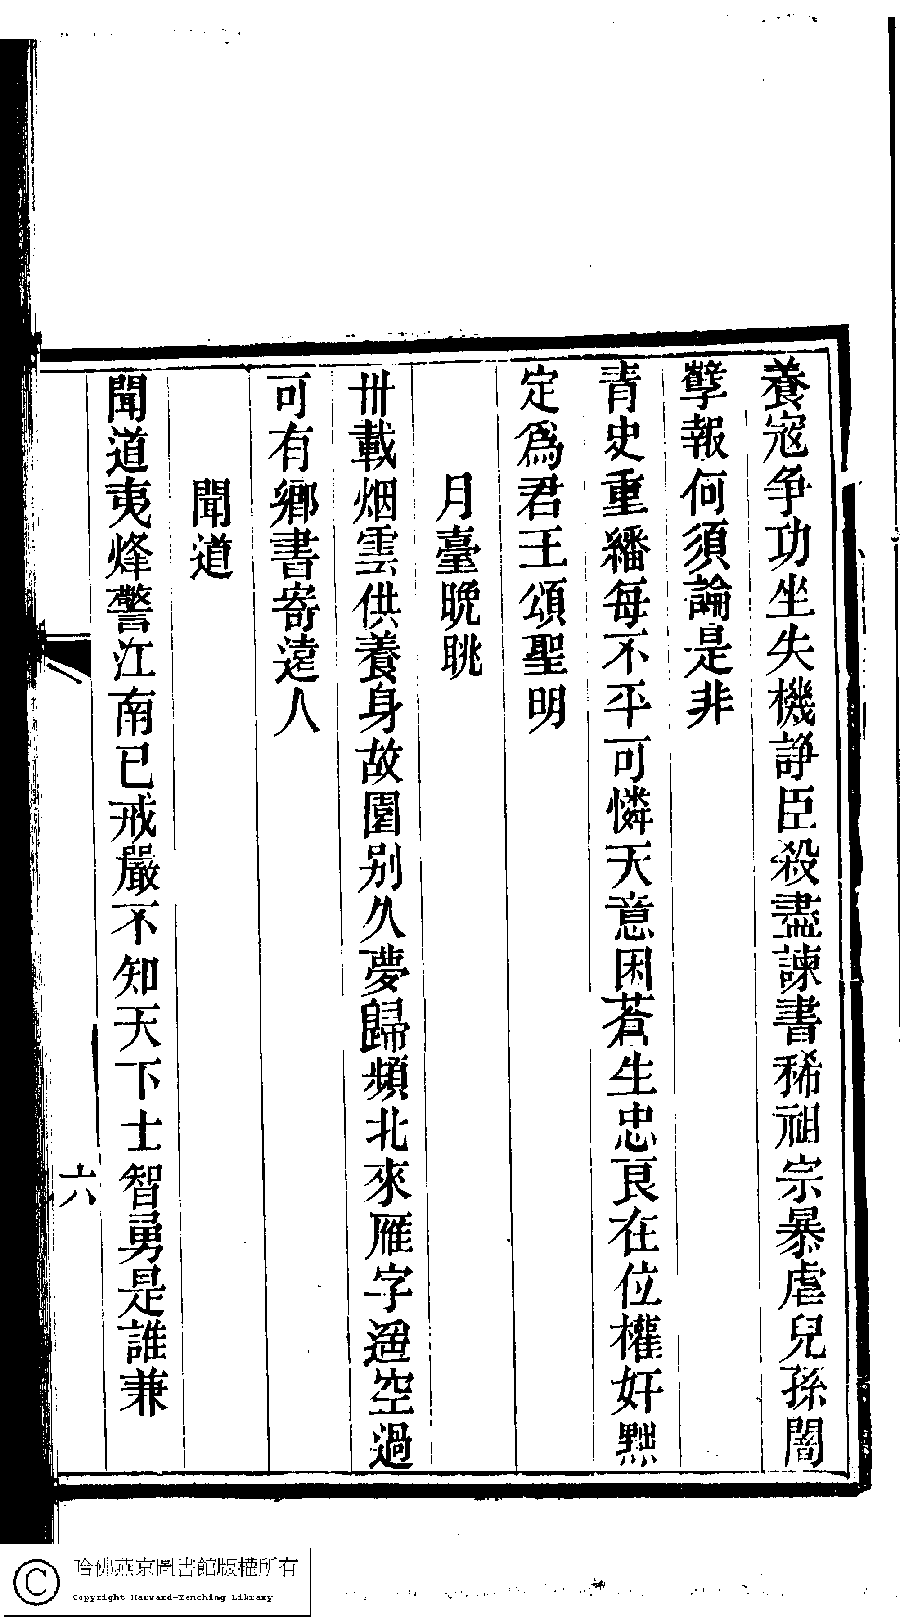 養寇争功坐失機諍臣殺盡諫書稀祖宗暴虐兒孫闇
孽報何須論是非
青史重繙每不平可憐天意困蒼生忠良在位權奸黜
定爲君王頌聖明
月臺晚眺
卅載烟雲供養身故園别久夢歸頻北來雁字遥空過
可有鄉書寄遠人
聞道
聞道夷烽警江南已戒嚴不知天下士智勇是誰兼
六
哈佛燕京圖書館版權所有
Copyright Harvard-Yenching Library